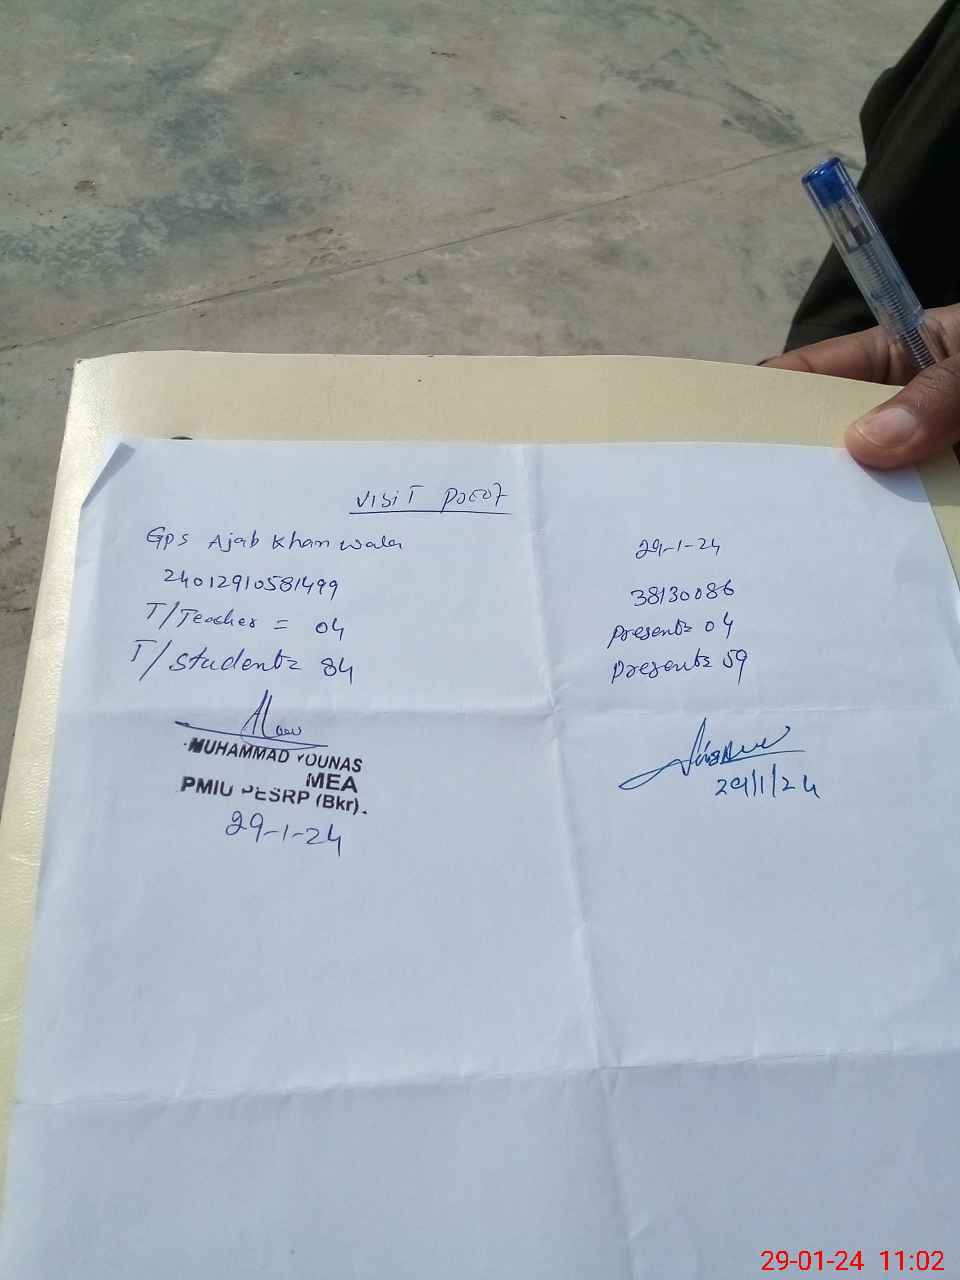 VISIT PROOF
Gps Ajab Khan wala
29-1-24
24012910581499
38130086
T/Teacher = 04
Present = 04
T/Student = 84
Present = 59
MUHAMMAD YOUNAS
MEA
PMIU PESRP (Bkr).
29-1-24
29/1/24
29-01-24 11:02